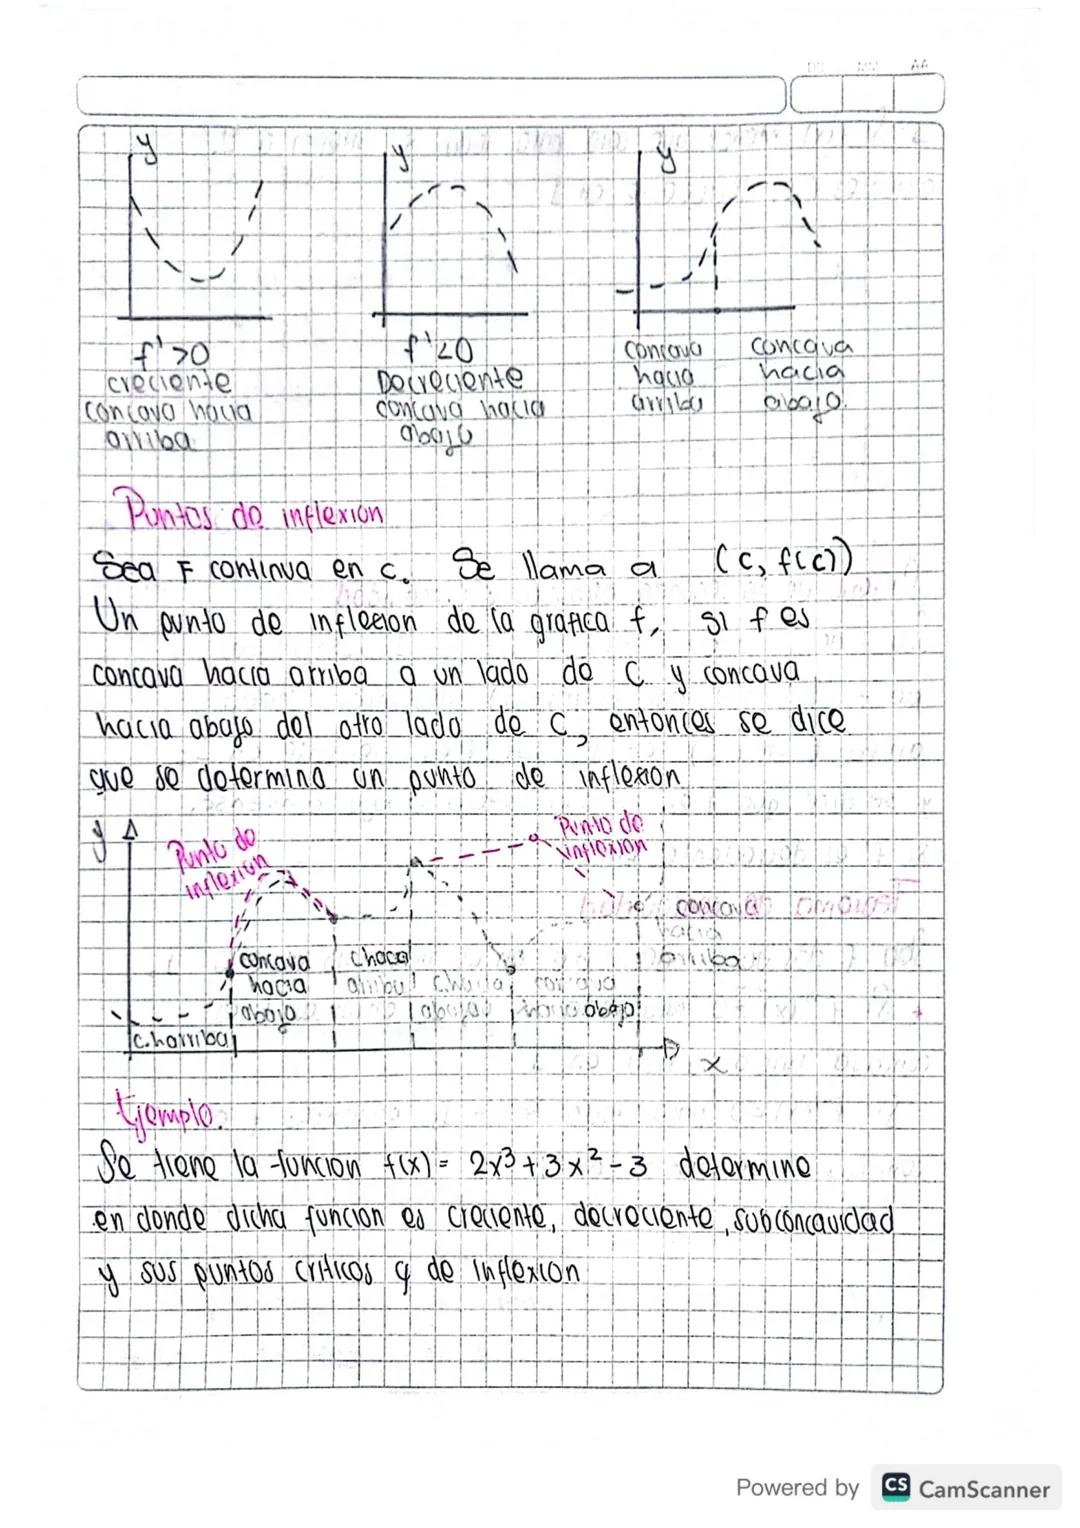 DD MM AA
y y y
f'>0 f'<0 concava concava
creciente Decreciente hacia hacia
concavo hacia concava hacia arriba abajo.
arriba abajo
Puntos de inflexion
Sea F continua en c. Se llama a (c, f(c))
Un punto de inflecion de la grafica f, si f es
concava hacia arriba a un lado de C y concava
hacia abajo del otro lado de C, entonces se dice
que se determina un punto de inflexion
y
Punto de
inflexion
Punto de
inflexion
concava
hacia
arriba
concava
hacia
abajo
c.harriba
hacia abajo
x
Ejemplo.
Se tiene la funcion f(x) = 2x³ + 3x² - 3 determine
en donde dicha funcion es creciente, decreciente, subconcavidad
y sus puntos criticos y de inflexion
Powered by CS CamScanner